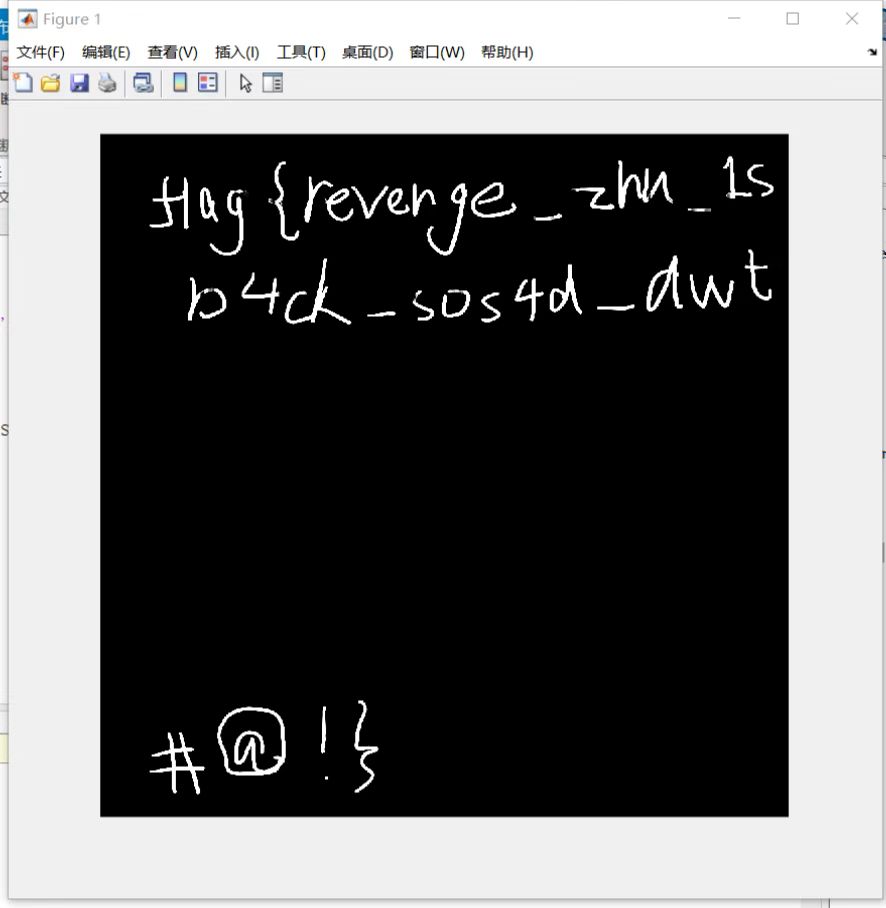 Figure 1
文件(F) 编辑(E) 查看(V) 插入(I) 工具(T) 桌面(D) 窗口(W) 帮助(H)
flag{revenge_zhu_1s
b4ck_sos4d_dwt
#@!}